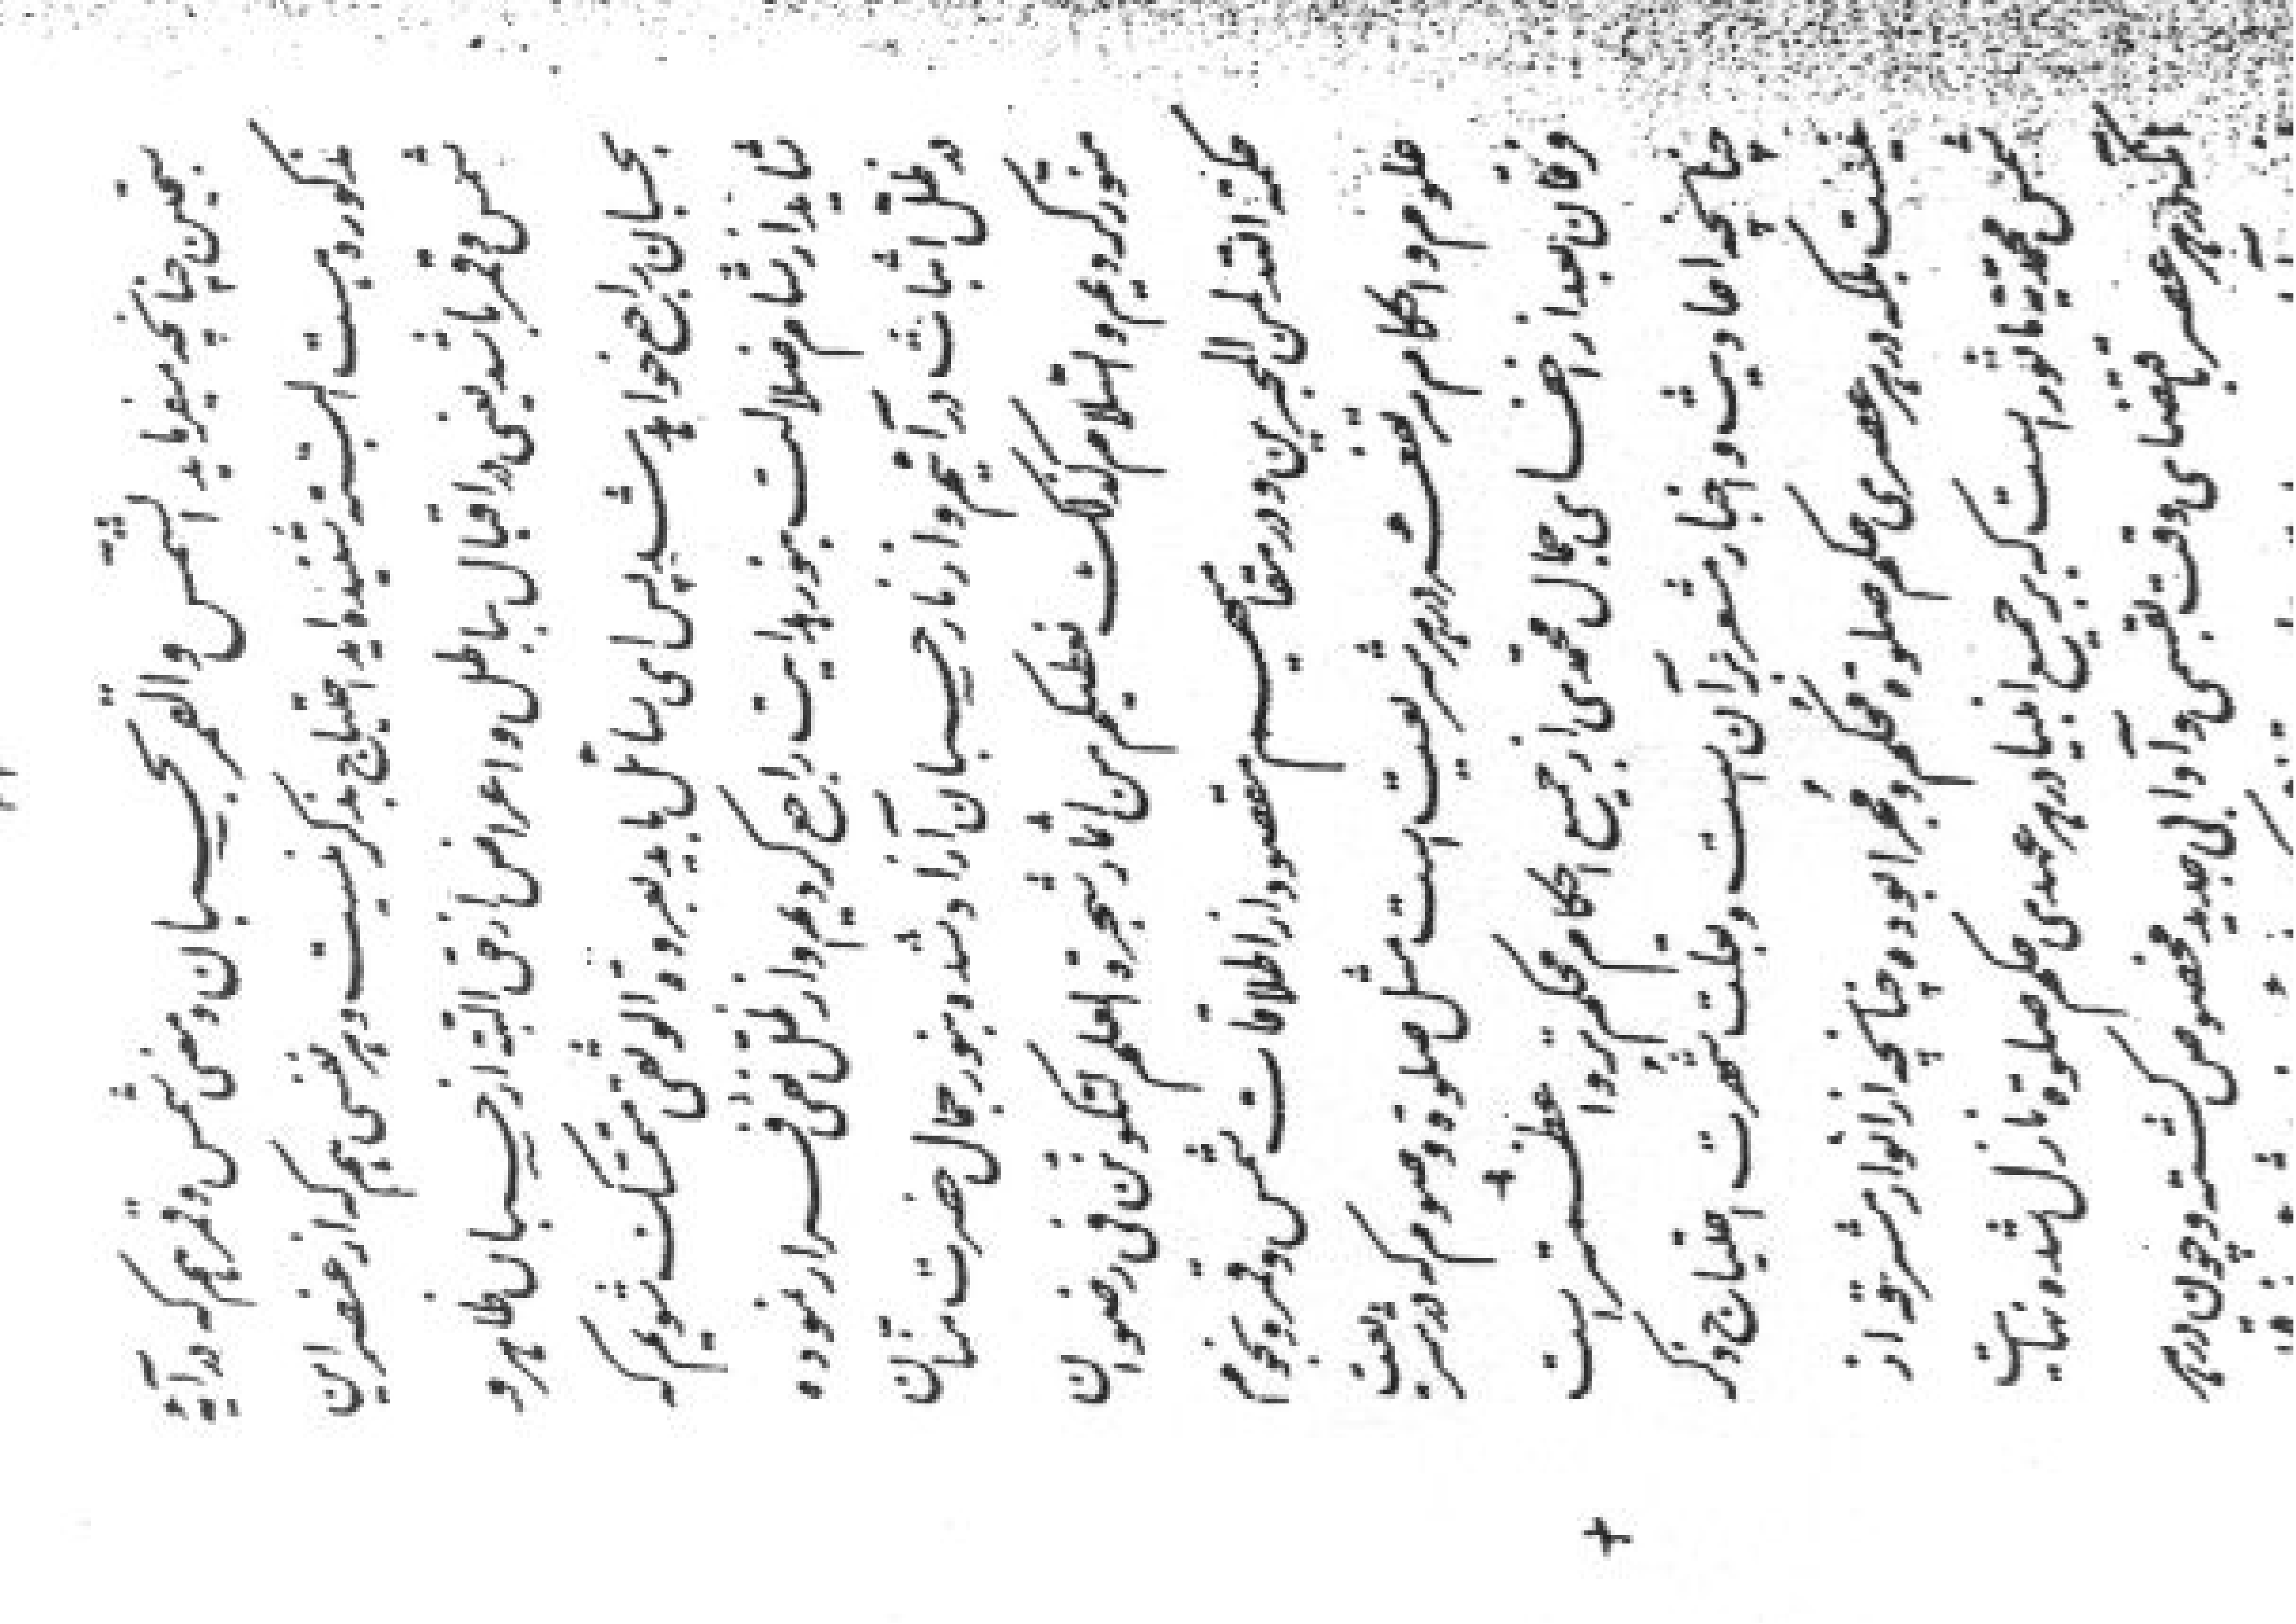 بيقين چنانچه ميفرمايد الشمس والقمر بحسبان و معنی شمس و قمر هم که در آیهٔ
مذکوره هست البته شنیده‌اید احتیاج بذکر نیست و هر نفسی هم که از عنصر این
شمس و قمر باشد یعنی در اقبال بباطل و اعراض از حق البته از حسبان ظاهر و
بحسبان راجع خواهد شد پس ای سائل باید بعروة الوثقی متمسک شویم که
شاید از شام ضلالت بنور هدایت راجع گردیم و از ظل نفی فرار نموده
در ظل اثبات درآئیم و از نار حسبان آزاد شده بنور جمال حضرت منّان
منور گردیم والسّلام کذلک نعطیکم من اثمار شجرة العلم لتکونن فی رضوان
حکمة الله لمن المحبرین و در مقام مقصود از اطلاقات شمس و قمر و نجوم
علوم و احکام مرتفعه در هر شریعت است مثل صلوة و صوم که در شریعت
فرقان بعد از اخفای جمال محمدی از جمیع احکام محکمتر و اعظمتر است
چنانچه احادیث و اخبار مشعر بر آن است و بعلت شهرت احتیاج ذکر
نیست بلکه در هر عصری حکم صلوة محکم و مجرا بوده چنانچه از انوار مشرقه از
شمس محمدیه مأثور است که بر جمیع انبیا در هر عهدی حکم صلوة نازل شده نهایت
آنکه در هر عصر باقتضای وقت بقسمی و آدابی جدید مخصوص گشته و چون در هر